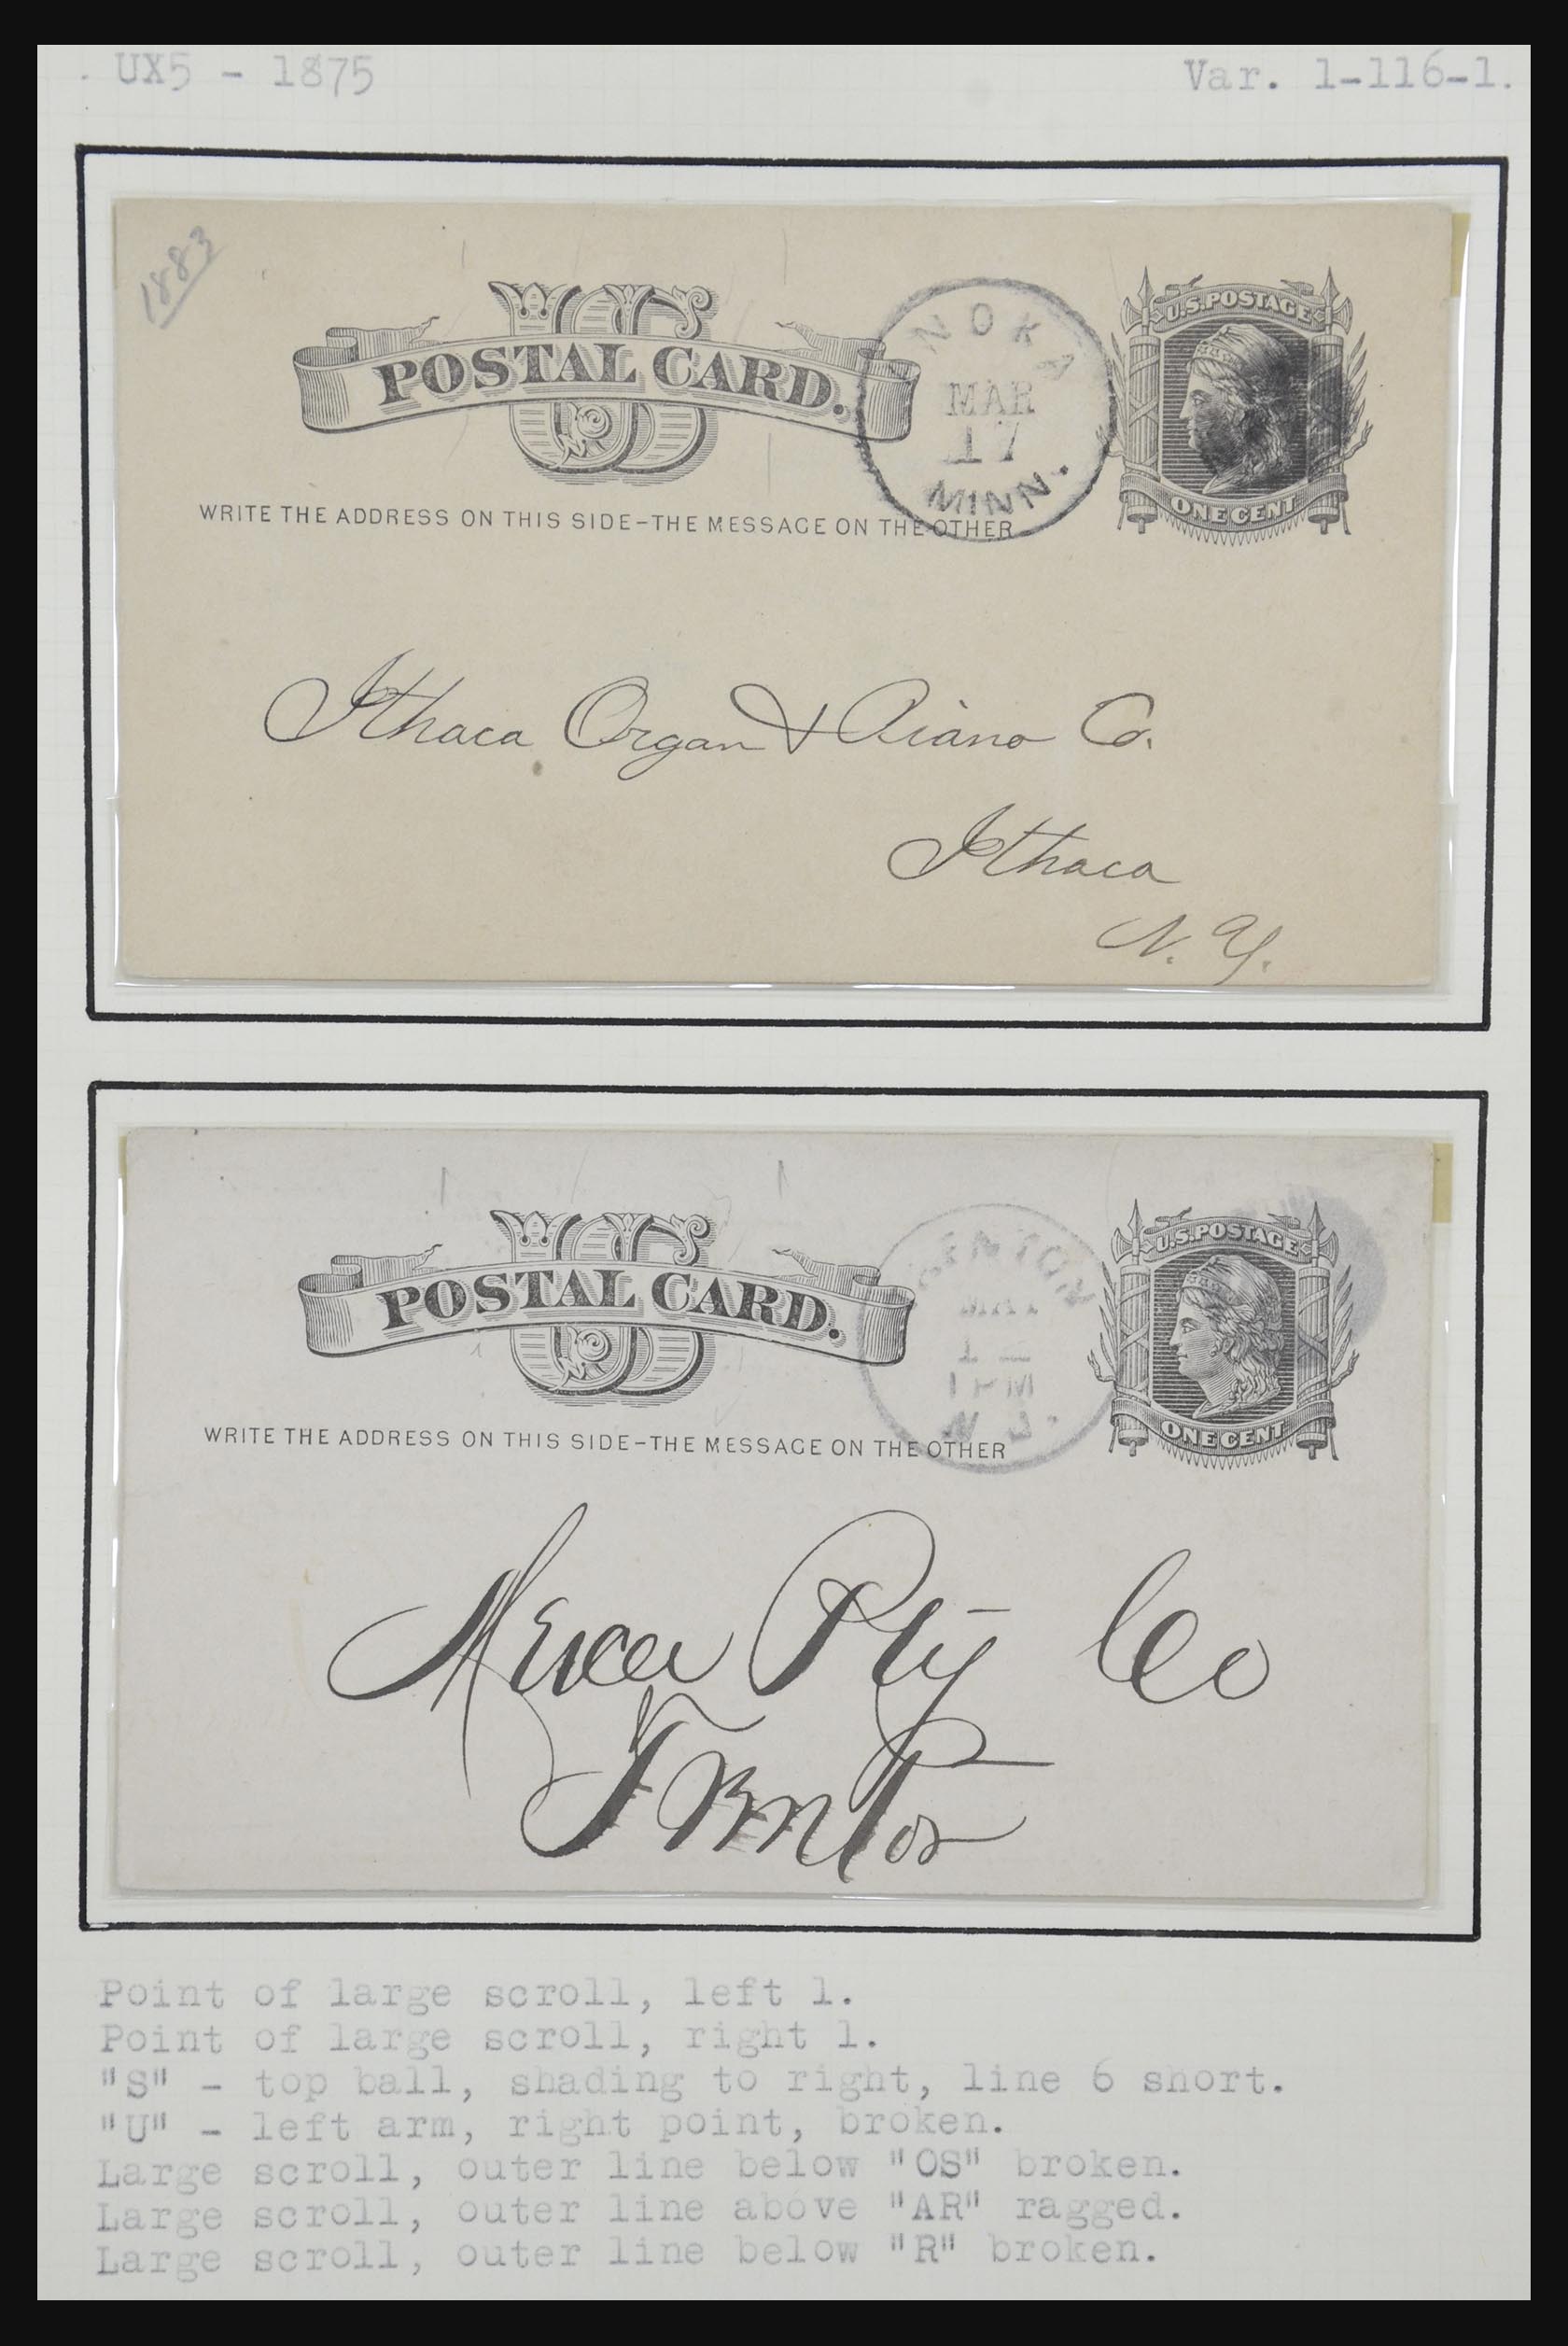 UX5 - 1875
Var. 1-116-1.
1883
POSTAL CARD.
U.S. POSTAGE
ONE CENT
NOKA
MAR
17
MINN.
WRITE THE ADDRESS ON THIS SIDE-THE MESSAGE ON THE OTHER
Ithaca Organ & Piano Co.
Ithaca
N. Y.
US
POSTAL CARD.
U.S. POSTAGE
ONE CENT
1 PM
N. J.
WRITE THE ADDRESS ON THIS SIDE-THE MESSAGE ON THE OTHER
Mercer Co
Trenton
Point of large scroll, left 1.
Point of large scroll, right 1.
"S" - top ball, shading to right, line 6 short.
"U" - left arm, right point, broken.
Large scroll, outer line below "OS" broken.
Large scroll, outer line above "AR" ragged.
Large scroll, outer line below "R" broken.